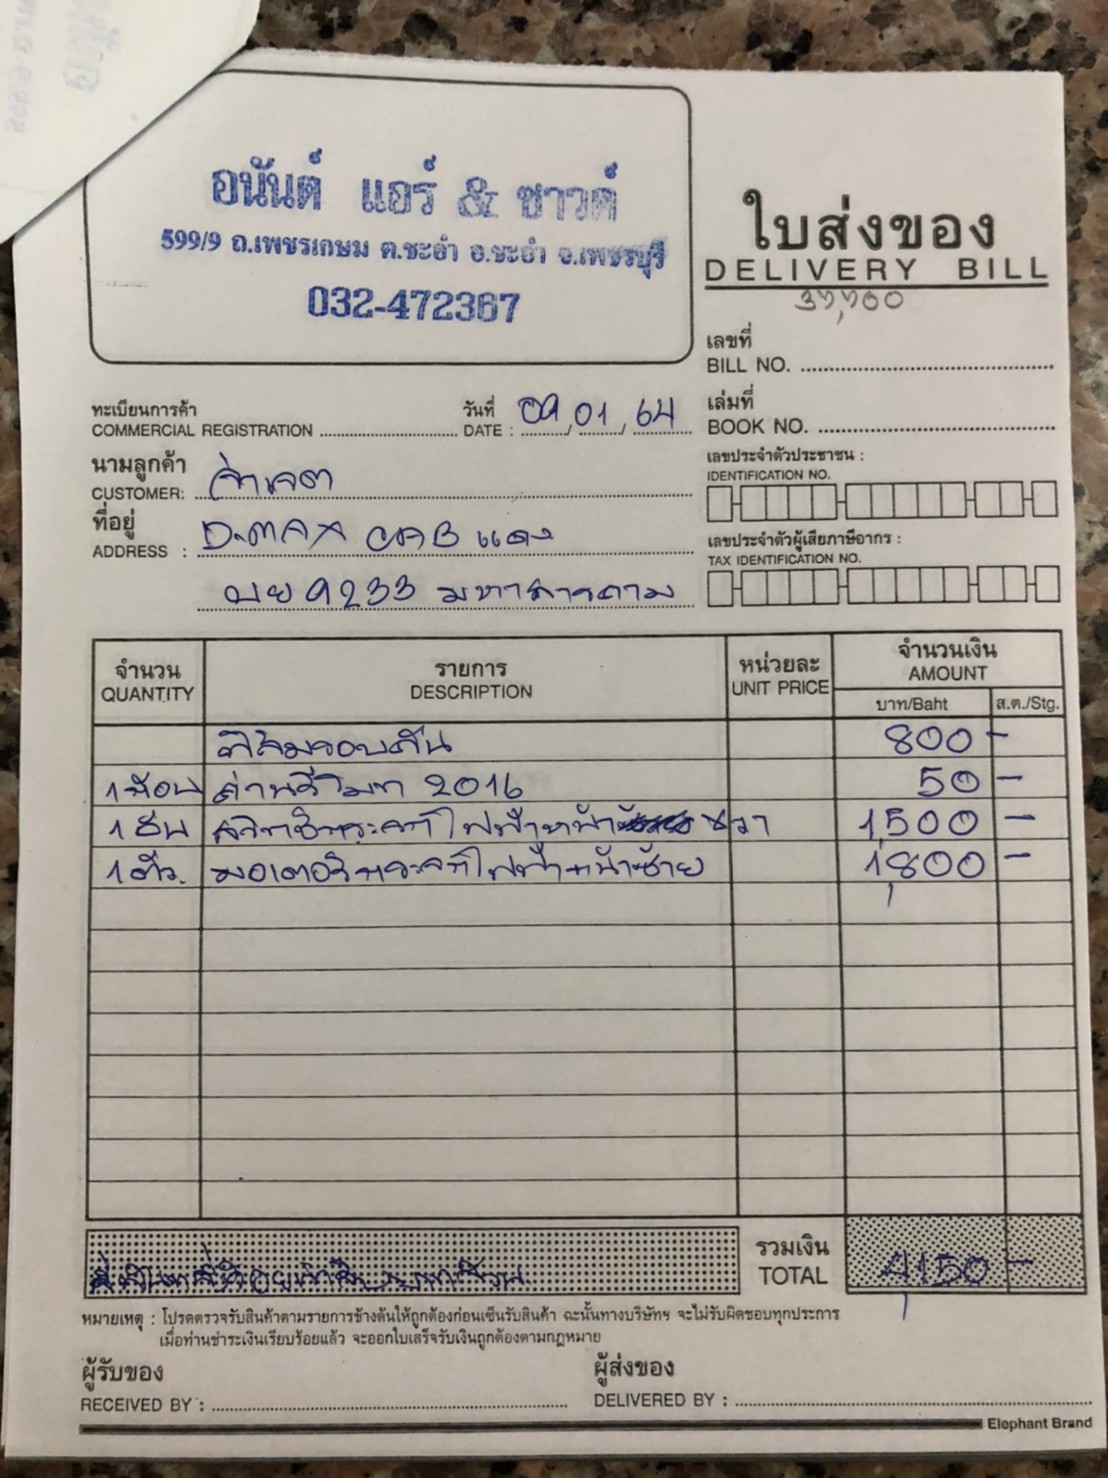 อนันต์ แอร์ & ซาวด์
599/9 ถ.เพชรเกษม ต.ชะอำ อ.ชะอำ จ.เพชรบุรี
032-472367
ใบส่งของ
DELIVERY BILL
เลขที่
BILL NO.
ทะเบียนการค้า
COMMERCIAL REGISTRATION
วันที่
DATE : 09/01/64
เล่มที่
BOOK NO.
นามลูกค้า
CUSTOMER:
เลขประจำตัวประชาชน :
IDENTIFICATION NO.
ที่อยู่
ADDRESS : D-MAX CAB แดง
9233 มหาสารคาม
เลขประจำตัวผู้เสียภาษีอากร :
TAX IDENTIFICATION NO.
จำนวน รายการ หน่วยละ จำนวนเงิน
QUANTITY DESCRIPTION UNIT PRICE AMOUNT
บาท/Baht ส.ต./Stg.
ฟิล์มรอบคัน 800 -
1 ก้อน ถ่านรีโมท 2016 50 -
1 อัน สวิทช์กระจกไฟฟ้าหน้า ขวา 1,500 -
1 ตัว. มอเตอร์กระจกไฟฟ้าหน้าซ้าย 1,800 -
รวมเงิน
TOTAL 4,150 -
สี่พันหนึ่งร้อยห้าสิบบาทถ้วน
หมายเหตุ : โปรดตรวจรับสินค้าตามรายการข้างต้นให้ถูกต้องก่อนเซ็นรับสินค้า ฉะนั้นทางบริษัทฯ จะไม่รับผิดชอบทุกประการ
เมื่อท่านชำระเงินเรียบร้อยแล้ว จะออกใบเสร็จรับเงินถูกต้องตามกฎหมาย
ผู้รับของ
RECEIVED BY :
ผู้ส่งของ
DELIVERED BY :
Elephant Brand